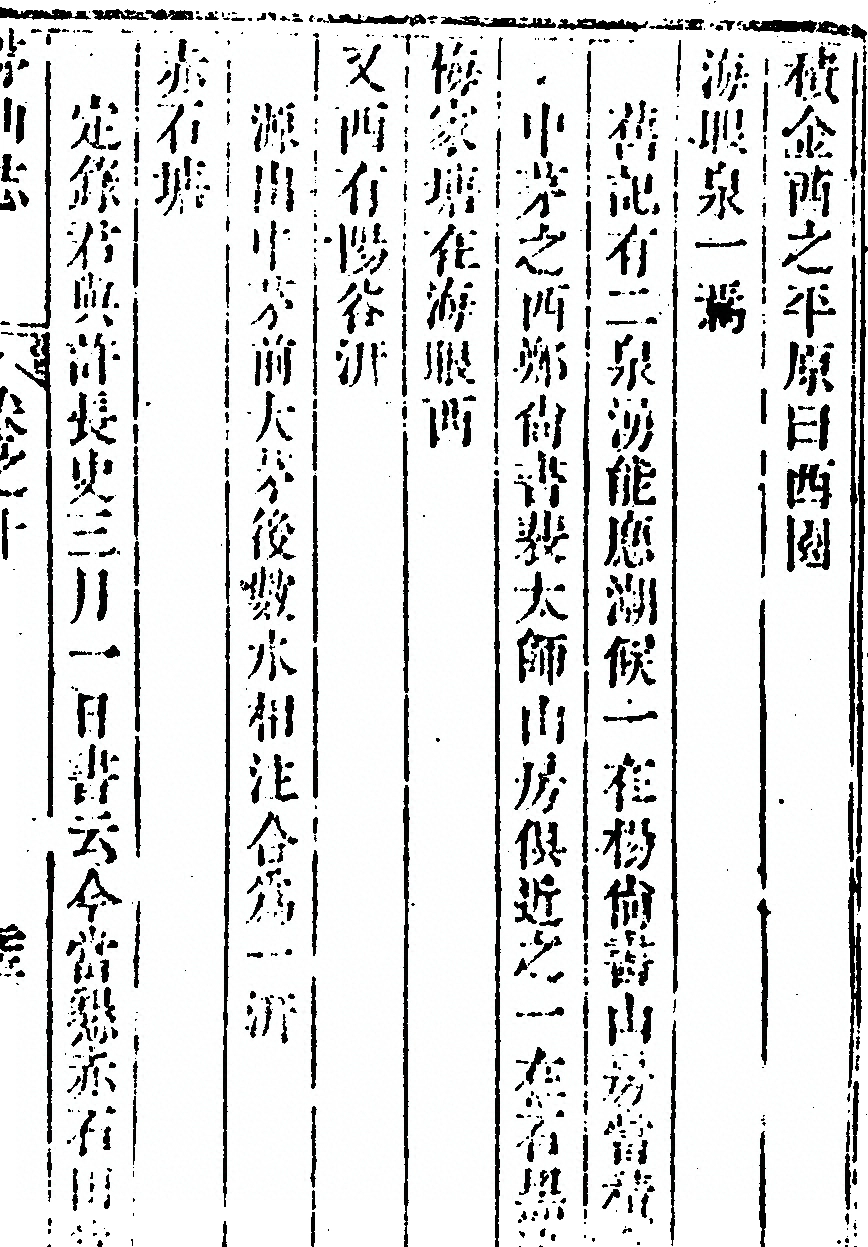 積金西之平原曰西園
海眼泉一漏
舊記有二泉湧能應潮候一在楊尙書山房當積
中茅之西鄭尙書裴太師山房俱近之一在石墨
悔家塘在海眼西
又西有陽谷泝
源出中茅前大茅後數水相注合爲一泝
赤石塘
定錄君與許長史三月一日書云今當懇赤石田
茅山志
卷之